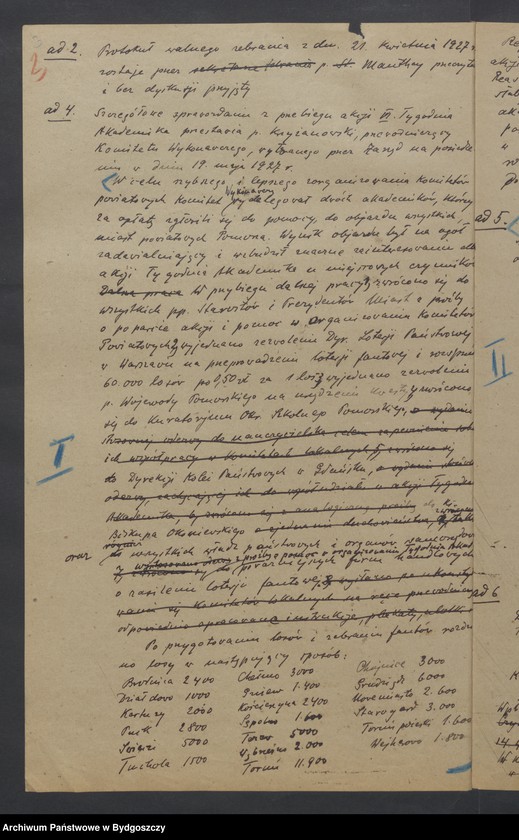 2,
ad 2. Protokuł walnego zebrania z dn. 21. kwietnia 1927 r
zostaje przez sekretarza p. St. Manthey
i bez dyskusji przyjęty
ad 4. Szczegółowe sprawozdanie z przebiegu akcji VI. Tygodnia
Akademika przedstawia p. Krzyżanowski, przewodniczący
Komitetu Wykonawczego, wybranego przez Zarząd na posiedze
niu w dniu 19. maja 1927 r.
W celu szybszego i lepszego zorganizowania Komitetów
powiatowych Komitet Wykonawczy wydelegował dwóch akademików, którzy
za opłatą zgłosili się do pomocy, do objazdu wszystkich
miast powiatowych Pomorza. Wynik objazdu był na ogół
zadawalniający i wzbudził znaczne zainteresowanie dla
akcji Tygodnia Akademika u miejscowych czynników
Dalsza praca W przebiegu dalszej pracy zwrócono się do
wszystkich pp. Starostów i Prezydentów Miast z prośbą
o poparcie akcji i pomoc w organizowaniu Komitetów
Powiatowych, wyjednano zezwolenie Dyr. Loterji Państwowej
w Warszawie na przeprowadzenie loterji fantowej i
60.000 losów po 0,50 zł za 1 los, wyjednano zezwolenie
p. Wojewody Pomorskiego na urządzenie kwesty, zwrócono
się do Kuratorjum Okr. Szkolnego Pomorskiego, o wydanie
do nauczycielstwa celem zapewnienia
ich współpracy w Komitetach lokalnych, zwrócono się
I
do Dyrekcji Kolei Państwowych w Gdańsku, o wydanie
odezwy, zachęcającej ich do współudziału w akcji Tygodnia
Akademika, zwrócono się z analogiczną prośbą do Ks.
Biskupa Okoniewskiego o zjednanie duchowieństwa,
oraz do wszystkich władz państwowych i organów samorządow
z prośbą o pomoc w organizowaniu Tygodnia Akad
do poważniejszych firm handlowych
o zasilenie loterji fantowej,
się Komitetów lokalnych na ręce przewodniczą
odpowiednio opracowane instrukcje, plakaty,
Po przygotowaniu losów i zebraniu fantów
no losy w następujący sposób:
Brodnica 2400 Chełmno 3000 Chojnice 3000
Działdowo 1000 Gniew 1.400 Grudziądz 6000
Kartuzy 2000 Kościerzyna 2400 Nowemiasto 2.600
Puck 2800 Sępolno 1.600 Starogard 3.000
Świecie 5000 Tczew 5000 Toruń powiat 1.600
Tuchola 1500 Wąbrzeźno 2.000 Wejherowo 1.800
Toruń 11.900
ad 5.
II
ad 6
Archiwum Państwowe w Bydgoszczy